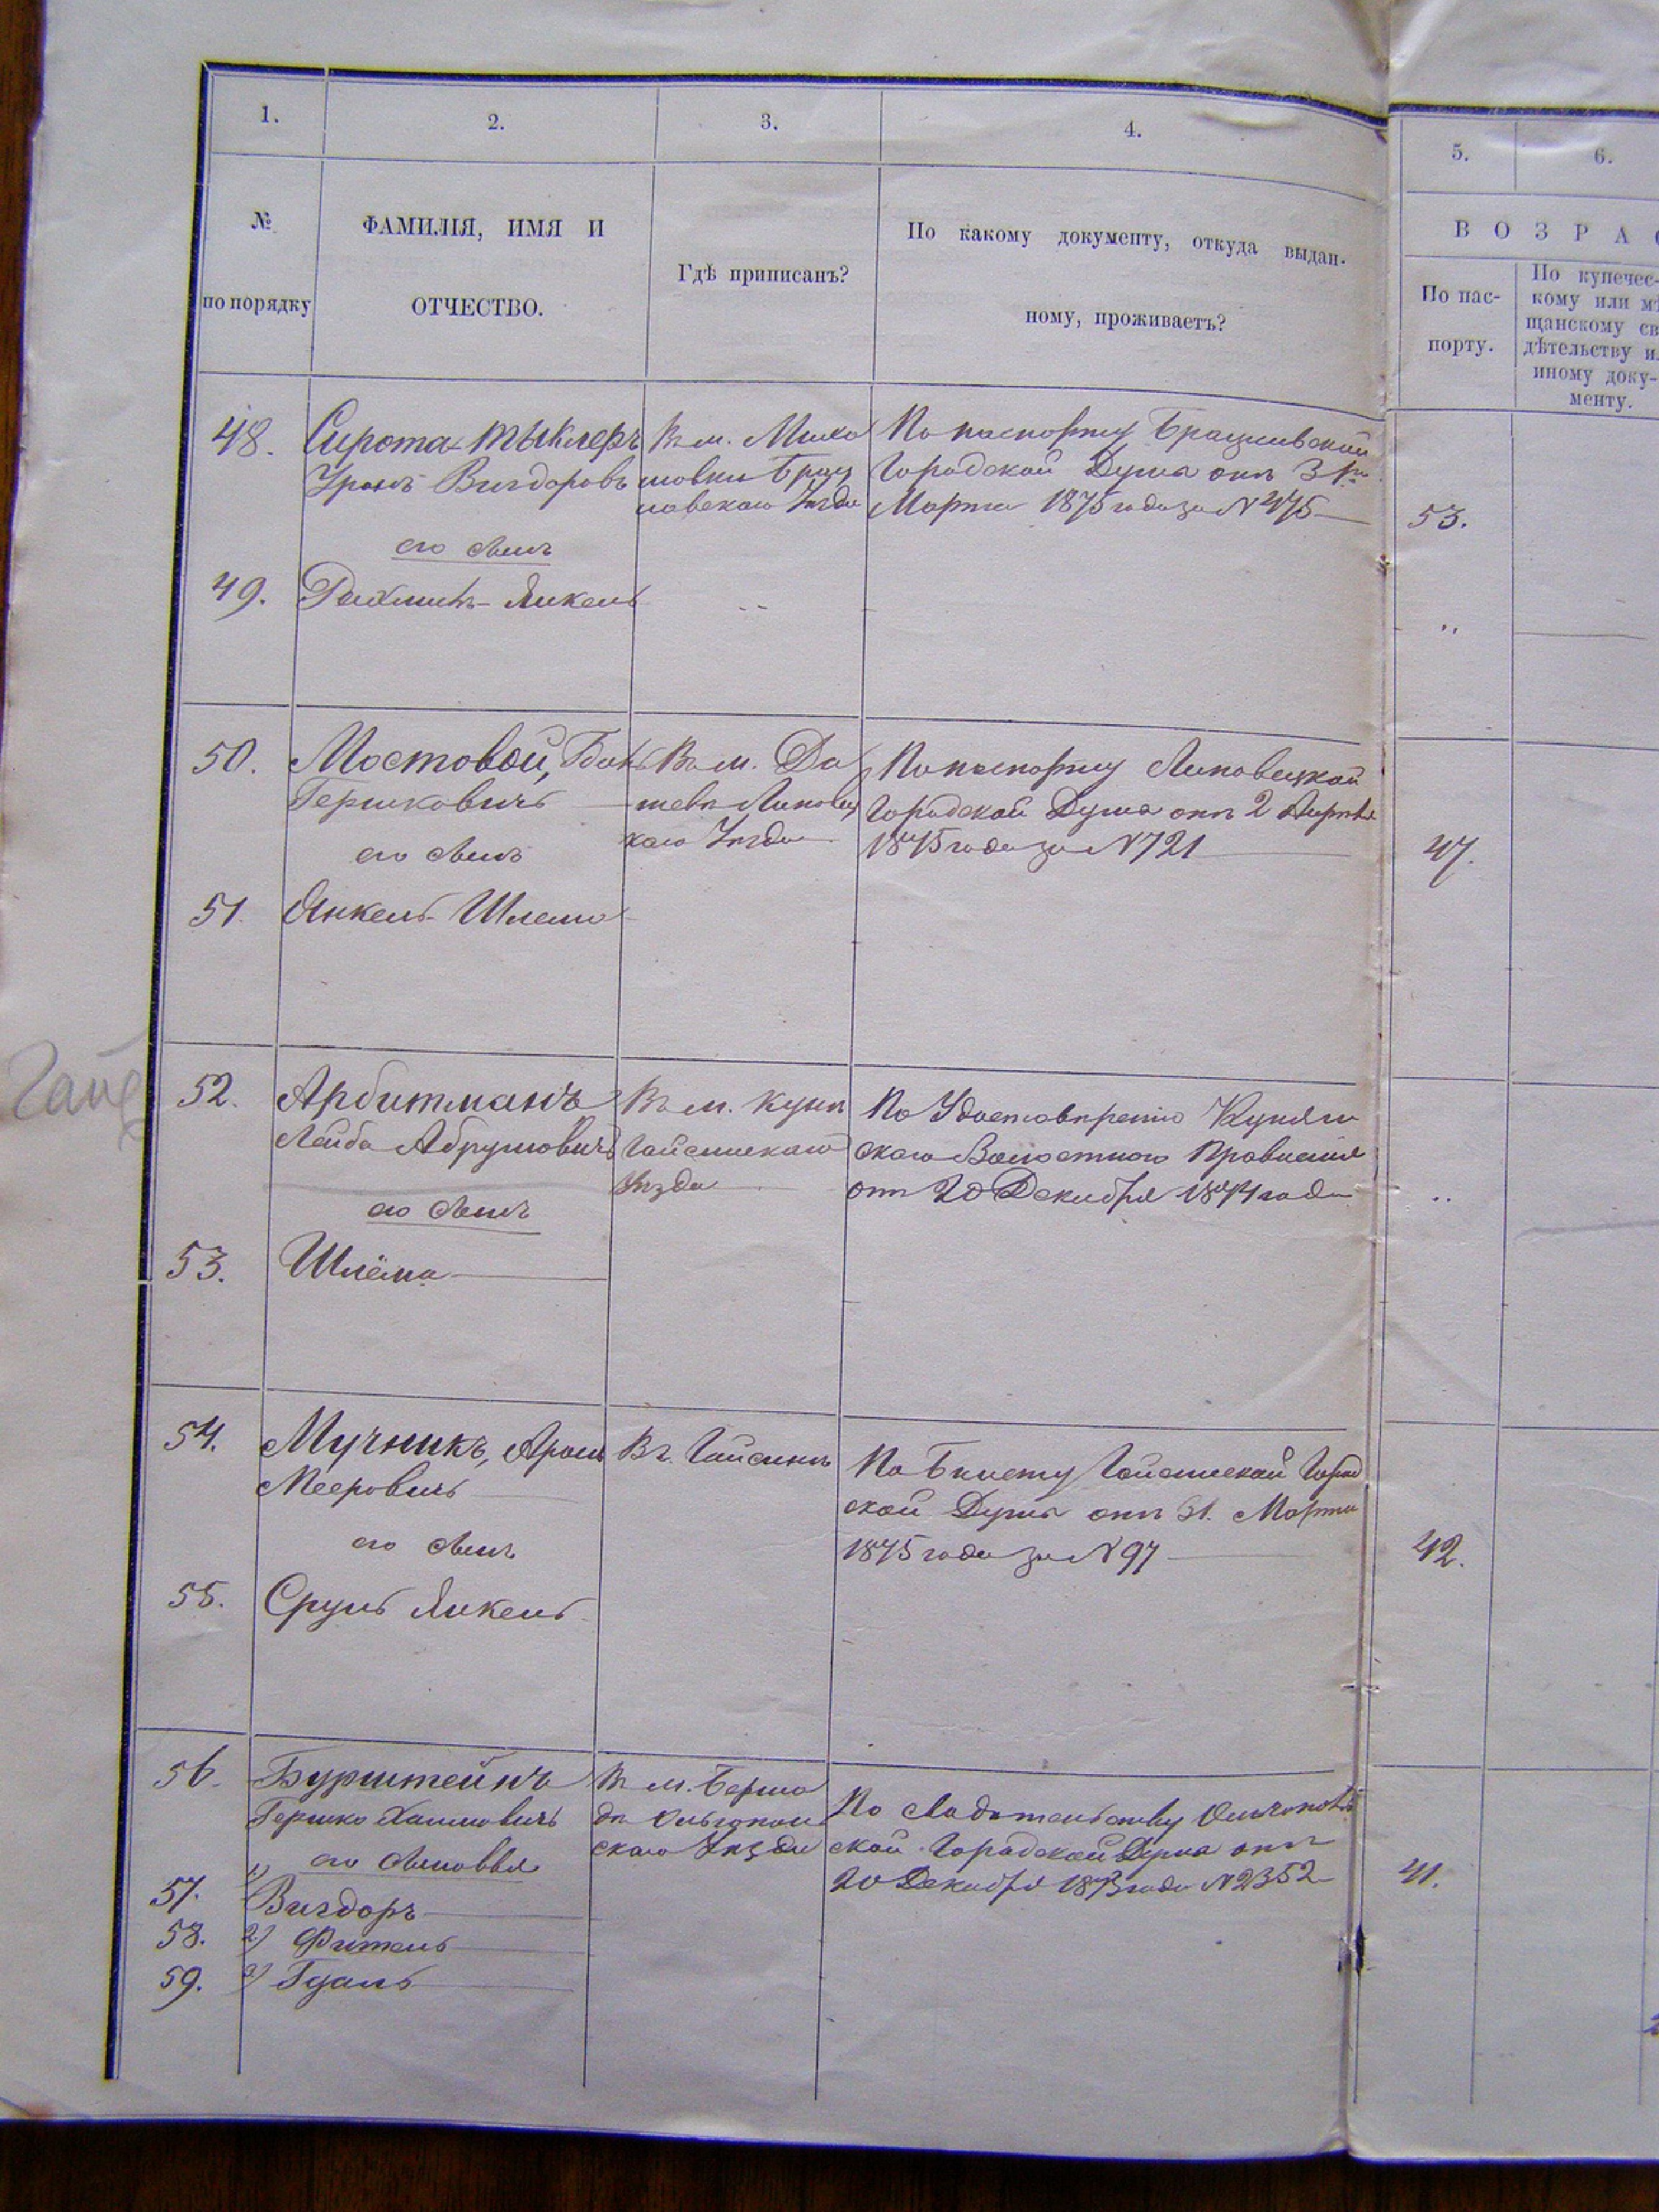 1. 2. 3. 4. 5. 6.
№ по порядку
ФАМИЛІЯ, ИМЯ И
ОТЧЕСТВО.
Гдѣ приписанъ?
По какому документу, откуда выдан-
ному, проживаетъ?
ВОЗРА
По пас-
порту.
По купечес-
кому или мѣ
щанскому св
дѣтельству и
иному доку-
менту.
48. Сирота
Вигдоровъ
Въ м.
Уѣзда
По паспорту Брацлавской
Городской Думы отъ 31го
Марта 1875 года за № 475
53.
его сынъ
49. Рахмиль-Янкель
50. Мостовой,
Гершковичъ
Въ м. Да
шевѣ Липовец
каго Уѣзда
По паспорту Липовецкой
Городской Думы отъ 2 Апрѣля
1875 года за № 721
47.
его сынъ
51. Янкель Шлема
Гайс
52. Арбитманъ
Лейба Абрумовичъ
Въ м. Кунѣ
Гайсинскаго
Уѣзда
По Удостовѣренію Кунян
скаго Волостного Правленія
отъ 20 Декабря 1874 года
его сынъ
53. Шлёма
54. Мучникъ, Аронъ
Мееровичъ
Въ г. Гайсинѣ
По Билету Гайсинской Город
ской Думы отъ 31. Марта
1875 года за № 97
42.
его сынъ
55. Сруль Янкель
56. Бурштейнъ
Гершко Хаимовичъ
Въ м. Берша
ди Ольгополь
скаго Уѣзда
По Свидѣтельству Ольгополь
ской Городской Думы отъ
20 Декабря 1873 года № 2352
41.
его сыновья
57. 1) Вигдоръ
58. 2) Фитель
59. 3) Гдаль